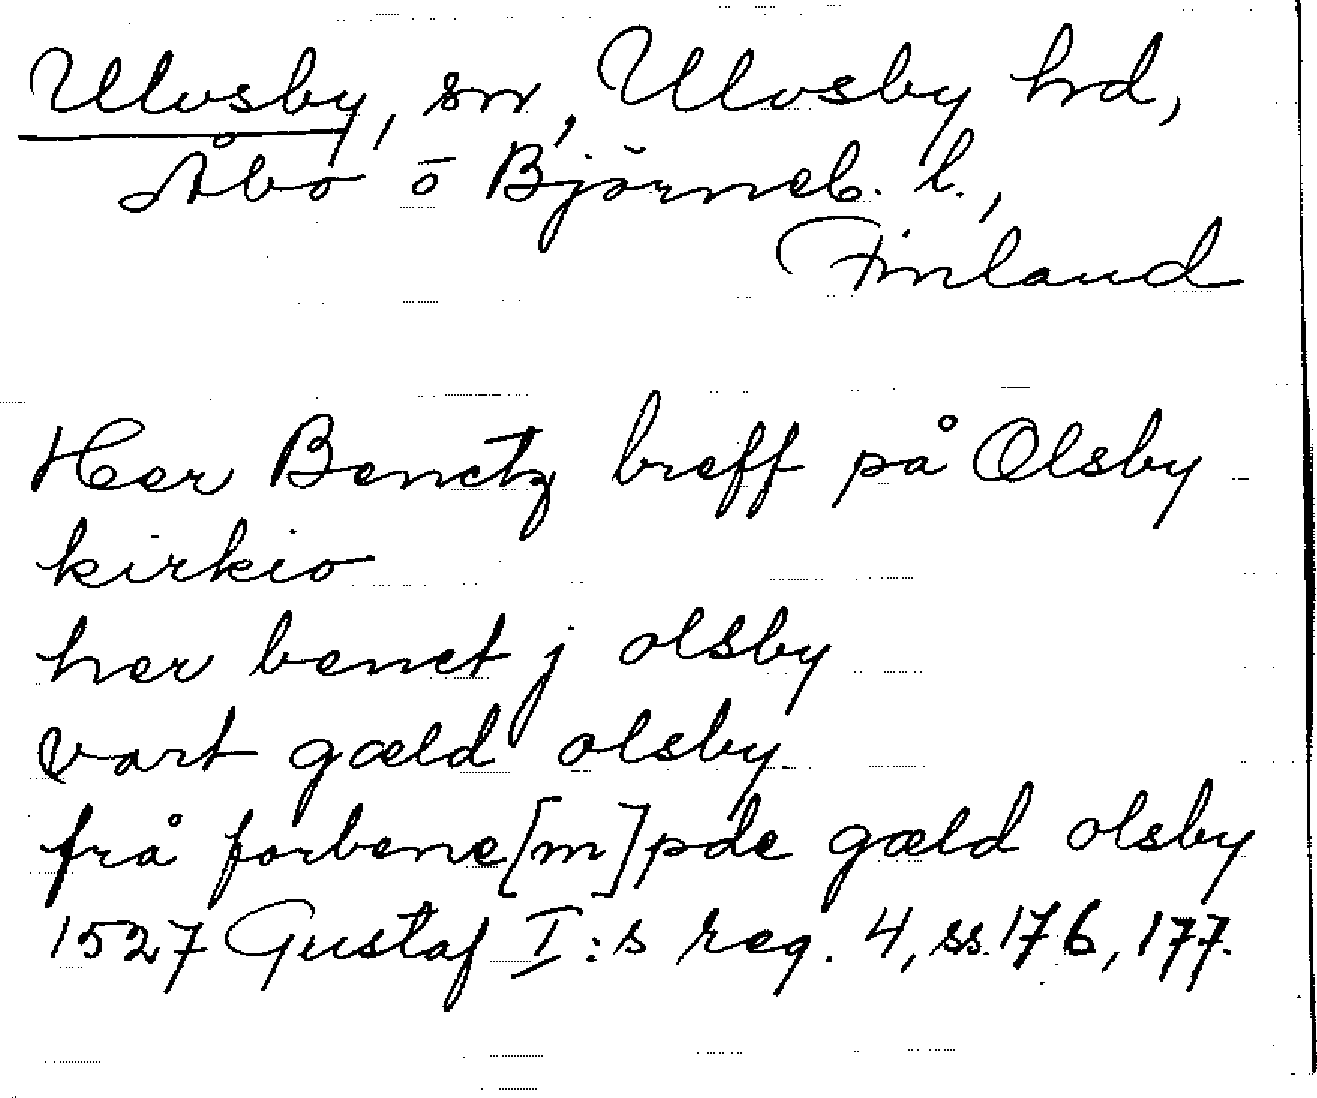 Ulvsby, sn, Ulvsby hd,
Åbo o Björneb. l.,
Finland
Her Benctz breff på Olsby
kirkio
her benct j olsby
vart gæld olsby.
frå forbene[m]pde gæld olsby
1527 Gustaf I:s reg. 4, ss. 176, 177.